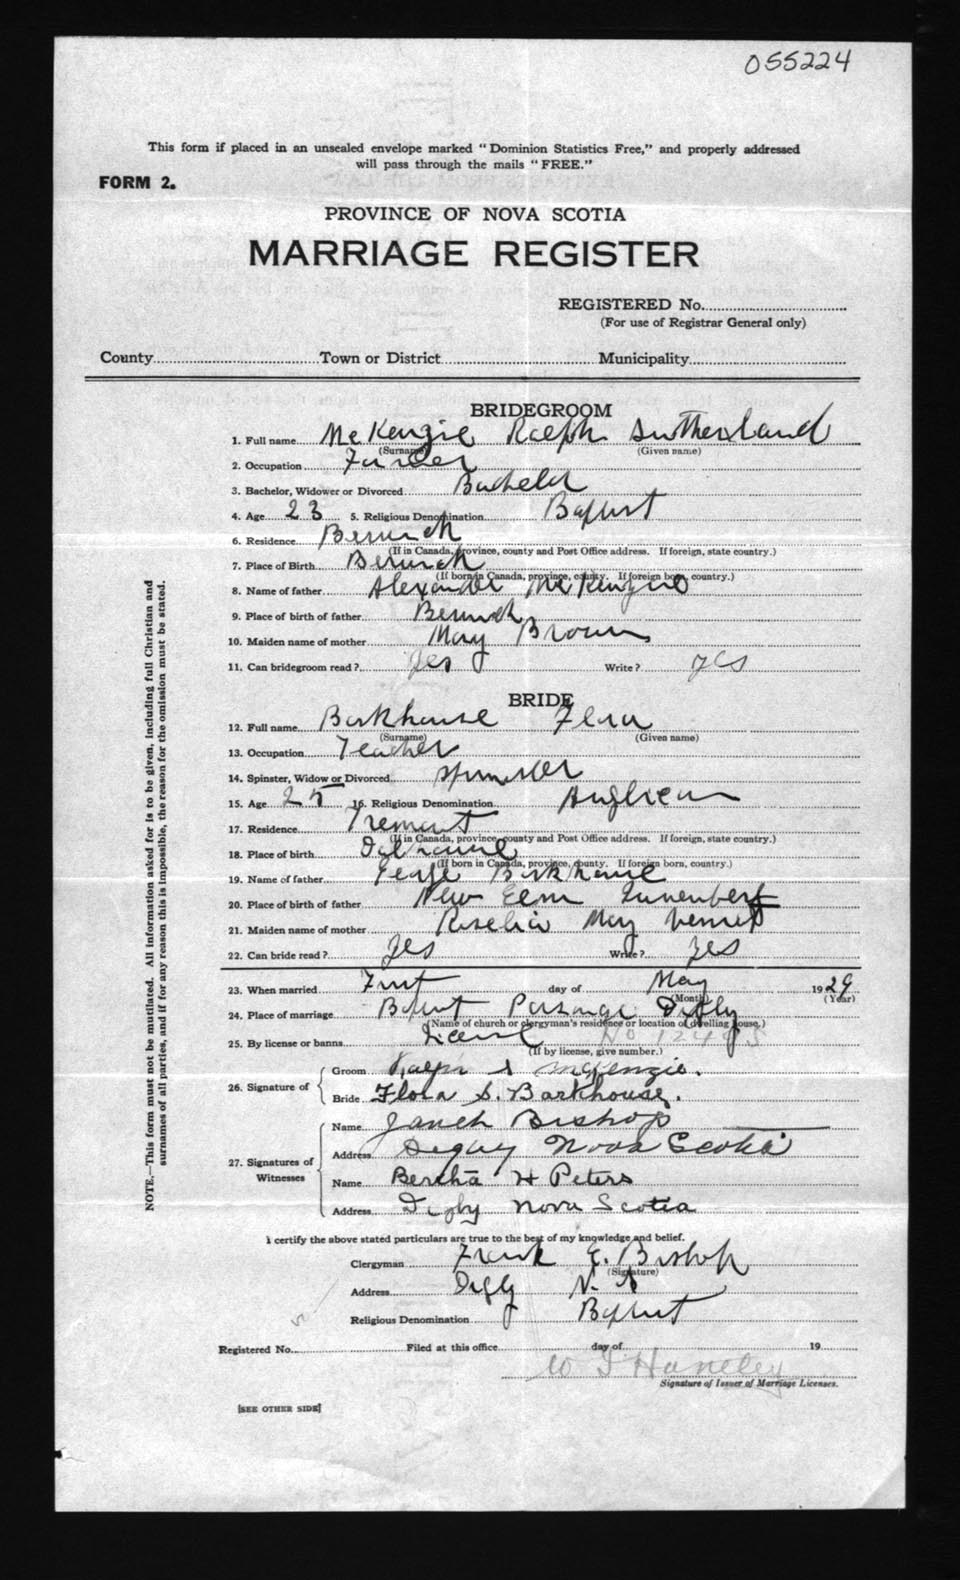 055224
This form if placed in an unsealed envelope marked "Dominion Statistics Free," and properly addressed
will pass through the mails "FREE."
FORM 2.
PROVINCE OF NOVA SCOTIA
MARRIAGE REGISTER
REGISTERED No.
(For use of Registrar General only)
County Town or District Municipality
BRIDEGROOM
1. Full name McKenzie Ralph Sutherland
(Surname) (Given name)
2. Occupation Farmer
3. Bachelor, Widower or Divorced Bachelor
4. Age 23 5. Religious Denomination Baptist
6. Residence Berwick
(If in Canada, province, county and Post Office address. If foreign, state country.)
7. Place of Birth Berwick
(If born in Canada, province, county. If foreign born, country.)
8. Name of father Alexander McKenzie
9. Place of birth of father Berwick
10. Maiden name of mother May Brown
11. Can bridegroom read? Yes Write? yes
BRIDE
12. Full name Barkhouse Flora
(Surname) (Given name)
13. Occupation Teacher
14. Spinster, Widow or Divorced Spinster
15. Age 25 16. Religious Denomination Anglican
17. Residence Tremont
(If in Canada, province, county and Post Office address. If foreign, state country.)
18. Place of birth Dalhousie
(If born in Canada, province, county. If foreign born, country.)
19. Name of father George Barkhouse
20. Place of birth of father New Elm Lunenberg
21. Maiden name of mother Roselia May
22. Can bride read? Yes Write? Yes
23. When married First day of May 1929
(Month) (Year)
24. Place of marriage Baptist Parsonage Digby
(Name of church or clergyman's residence or location of dwelling house.)
25. By license or banns License No 12495
(If by license, give number.)
26. Signature of
Groom Ralph S McKenzie.
Bride Flora S. Barkhouse.
27. Signatures of Witnesses
Name Bishop
Address Digby Nova Scotia
Name Bertha H Peters
Address Digby Nova Scotia
I certify the above stated particulars are true to the best of my knowledge and belief.
Clergyman Frank E. Bishop
(Signature)
Address Digby N.S
Religious Denomination Baptist
Registered No. Filed at this office day of 19
W Handley
Signature of Issuer of Marriage Licenses.
[SEE OTHER SIDE]
NOTE.—This form must not be mutilated. All information asked for is to be given, including full Christian and
surnames of all parties, and if for any reason this is impossible, the reason for the omission must be stated.